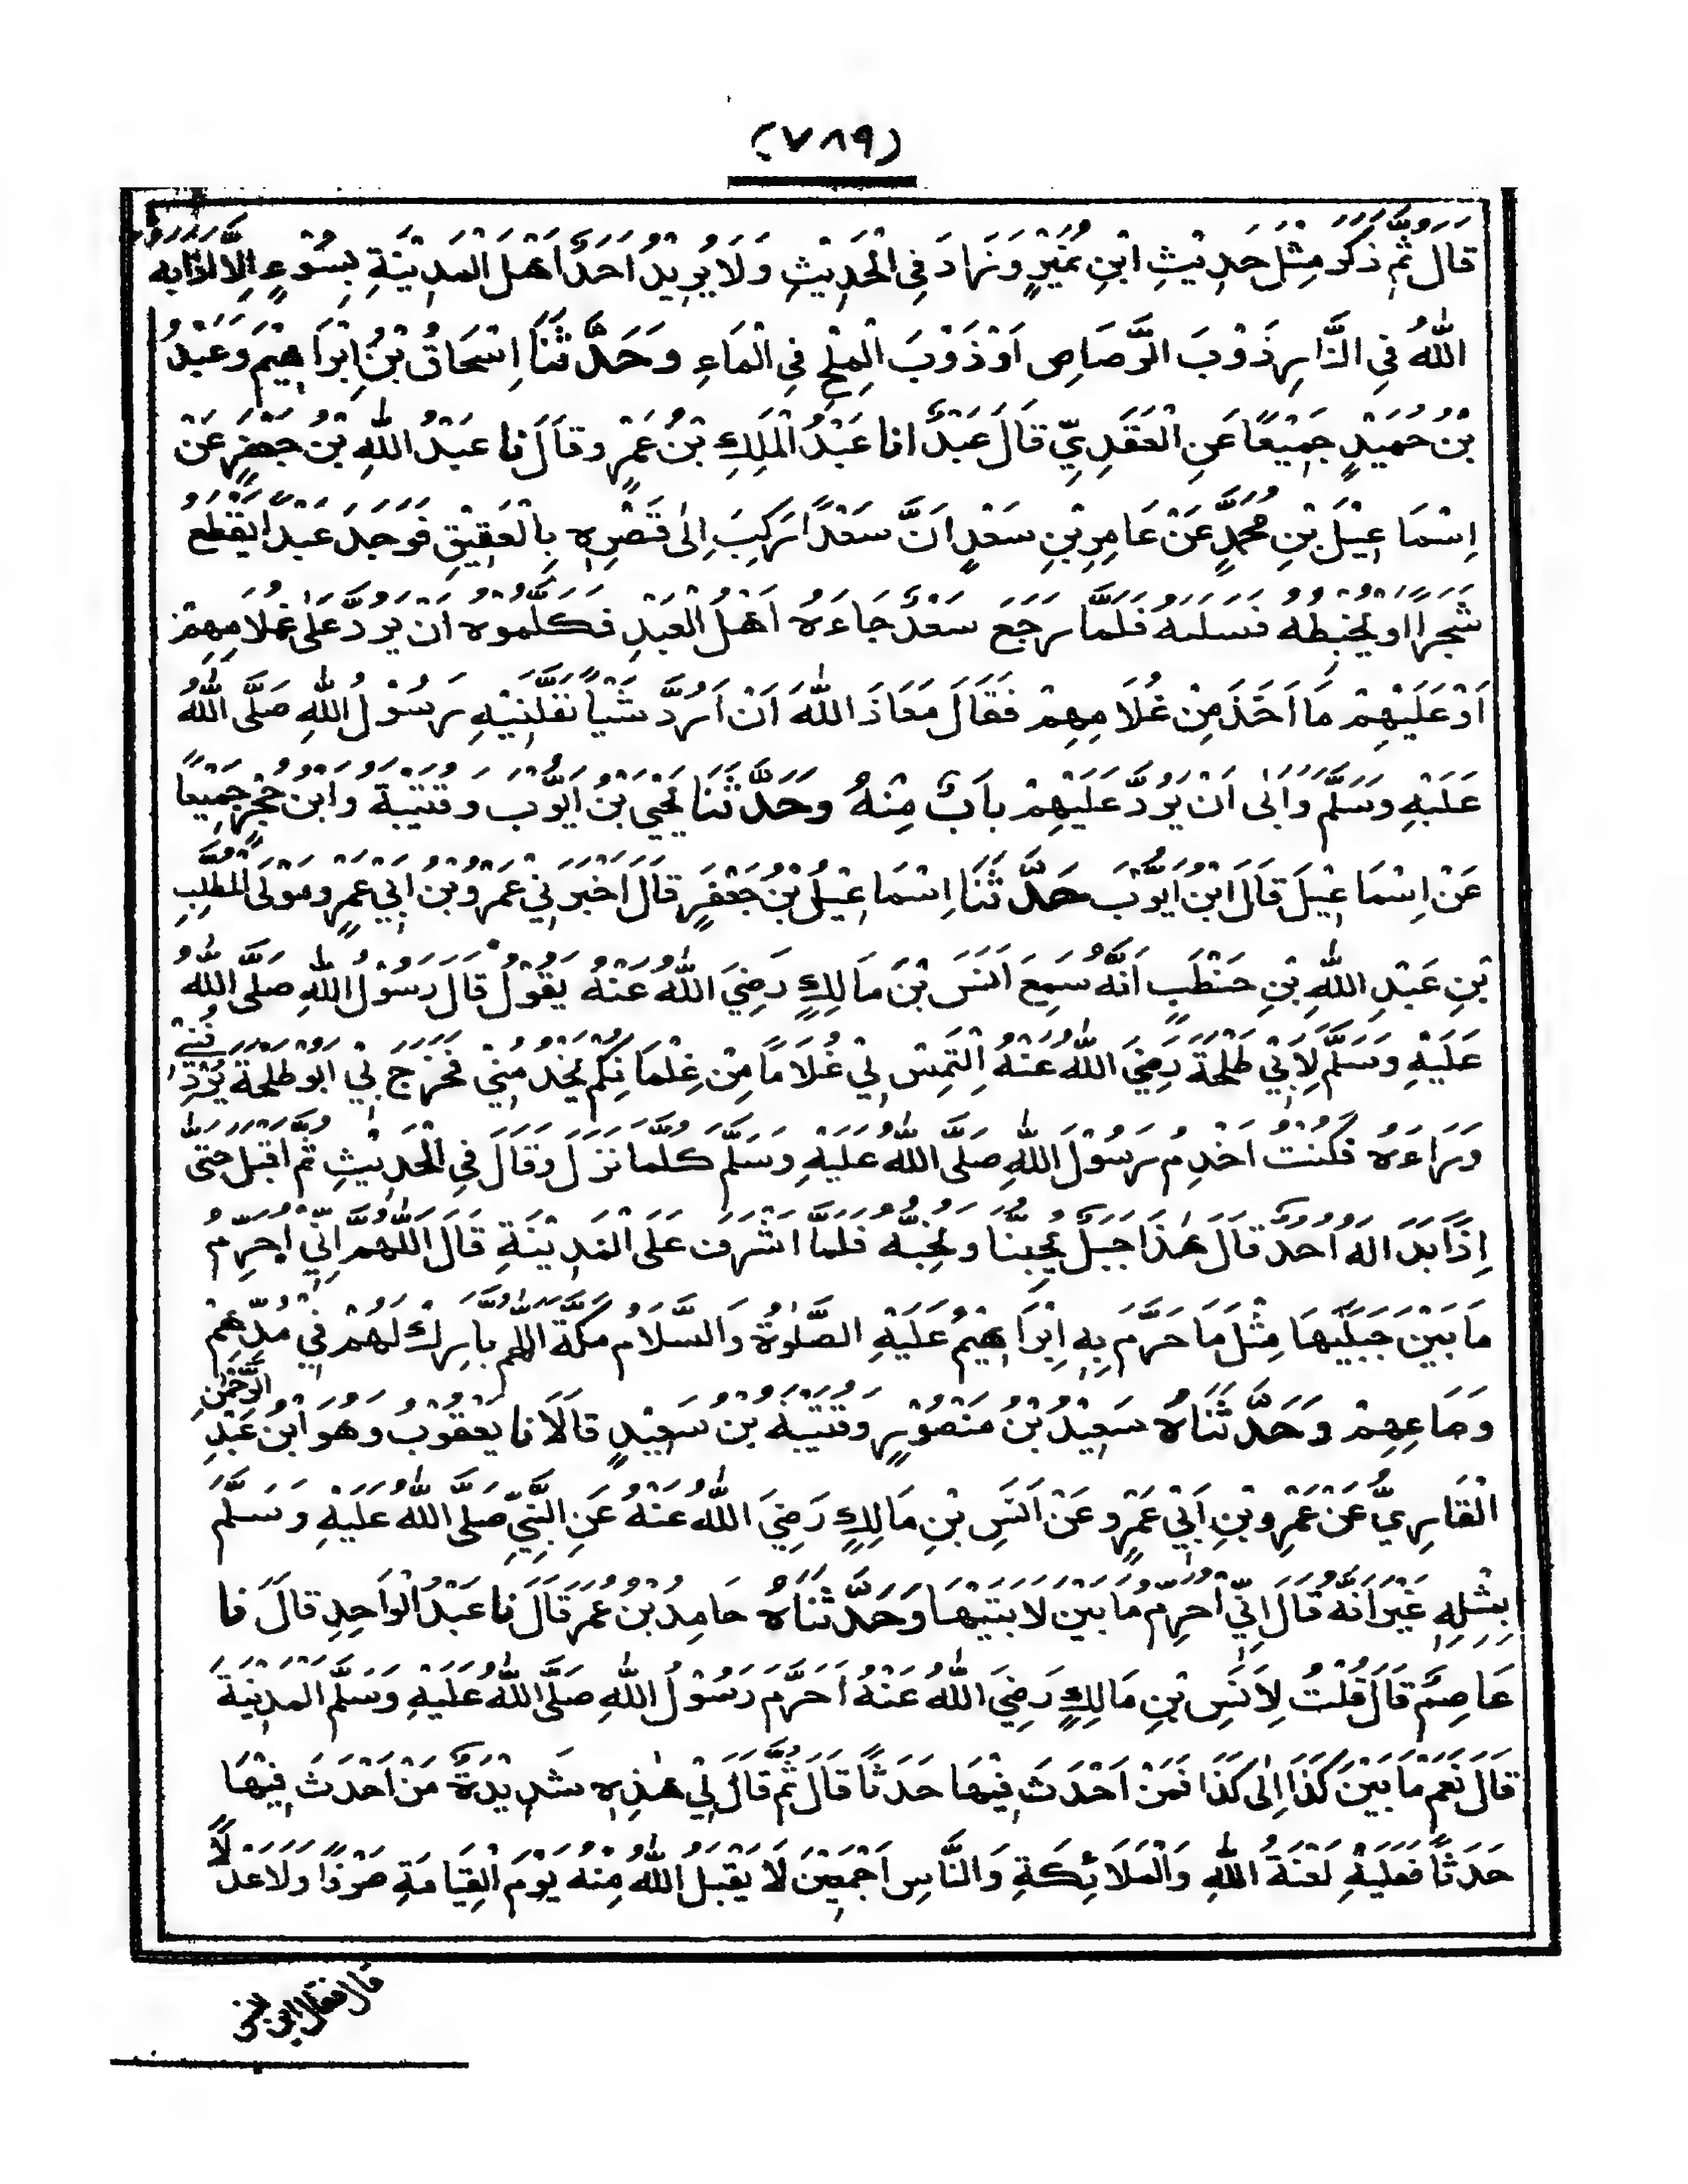 (٧٨٩)
قَالَ ثُمَّ ذَكَرَ مِثْلَ حَدِيْثِ ابْنِ نُمَيْرٍ وَزَادَ فِى الْحَدِيْثِ وَلَا يُرِيْدُ اَحَدٌ اَهْلَ الْمَدِيْنَةِ بِسُوْءٍ اِلَّا اَذَابَهُ
اللّٰهُ فِي النَّارِ ذَوْبَ الرَّصَاصِ اَوْ ذَوْبَ الْمِلْحِ فِي الْمَاءِ وَحَدَّثَنَا اِسْحَاقُ بْنُ اِبْرَاهِيْمَ وَعَبْدُ
بْنُ حُمَيْدٍ جَمِيْعًا عَنِ الْعَقَدِيِّ قَالَ عَبْدٌ انا عَبْدُ الْمَلِكِ بْنُ عَمْرٍو قَالَ نا عَبْدُ اللّٰهِ بْنُ جَعْفَرٍ عَنْ
اِسْمَاعِيْلَ بْنِ مُحَمَّدٍ عَنْ عَامِرِ بْنِ سَعْدٍ اَنَّ سَعْدًا رَكِبَ اِلٰى قَصْرِهٖ بِالْعَقِيْقِ فَوَجَدَ عَبْدًا يَقْطَعُ
شَجَرًا اَوْ يَخْبِطُهُ فَسَلَبَهُ فَلَمَّا رَجَعَ سَعْدٌ جَاءَهُ اَهْلُ الْعَبْدِ فَكَلَّمُوْهُ اَنْ يَرُدَّ عَلٰى غُلَامِهِمْ
اَوْ عَلَيْهِمْ مَا اَخَذَ مِنْ غُلَامِهِمْ فَقَالَ مَعَاذَ اللّٰهَ اَنْ اَرُدَّ شَيْأً نَفَّلَنِيْهِ رَسُوْلُ اللّٰهِ صَلَّى اللّٰهُ
عَلَيْهِ وَسَلَّمَ وَاَبٰى اَنْ يَرُدَّ عَلَيْهِمْ بَابٌ مِنْهُ وَحَدَّثَنَا يَحْيَى بْنُ اَيُّوْبَ وَقُتَيْبَةُ وَابْنُ حُجْرٍ جَمِيْعًا
عَنْ اِسْمَاعِيْلَ قَالَ ابْنُ اَيُّوْبَ حَدَّثَنَا اِسْمَاعِيْلُ بْنُ جَعْفَرٍ قَالَ اَخْبَرَنِيْ عَمْرُو بْنُ اَبِيْ عَمْرٍو مَوْلَى الْمُطَّلِبِ
بْنِ عَبْدِ اللّٰهِ بْنِ حَنْطَبٍ اَنَّهُ سَمِعَ اَنَسَ بْنَ مَالِكٍ رَضِيَ اللّٰهُ عَنْهُ يَقُوْلُ قَالَ رَسُوْلُ اللّٰهِ صَلَّى اللّٰهُ
عَلَيْهِ وَسَلَّمَ لِاَبِيْ طَلْحَةَ رَضِيَ اللّٰهُ عَنْهُ اِلْتَمِسْ لِيْ غُلَامًا مِنْ غِلْمَانِكُمْ يَخْدُمُنِيْ فَخَرَجَ بِيْ اَبُوْ طَلْحَةَ يُرْدِفُنِيْ
وَرَاءَهُ فَكُنْتُ اَخْدِمُ رَسُوْلَ اللّٰهِ صَلَّى اللّٰهُ عَلَيْهِ وَسَلَّمَ كُلَّمَا نَزَلَ وَقَالَ فِي الْحَدِيْثِ ثُمَّ اَقْبَلَ حَتّٰى
اِذَا بَدَا لَهُ اُحُدٌ قَالَ هٰذَا جَبَلٌ يُحِبُّنَا وَنُحِبُّهُ فَلَمَّا اَشْرَفَ عَلَى الْمَدِيْنَةِ قَالَ اللّٰهُمَّ اِنِّيْ اُحَرِّمُ
مَا بَيْنَ جَبَلَيْهَا مِثْلَ مَا حَرَّمَ بِهٖ اِبْرَاهِيْمُ عَلَيْهِ الصَّلٰوةُ وَالسَّلَامُ مَكَّةَ اللّٰهُمَّ بَارِكْ لَهُمْ فِيْ مُدِّهِمْ
وَصَاعِهِمْ وَحَدَّثَنَاهُ سَعِيْدُ بْنُ مَنْصُوْرٍ وَقُتَيْبَةُ بْنُ سَعِيْدٍ قَالَا نا يَعْقُوْبُ وَهُوَ ابْنُ عَبْدِ الرَّحْمٰنِ
الْقَارِيُّ عَنْ عَمْرِو بْنِ اَبِيْ عَمْرٍو عَنْ اَنَسِ بْنِ مَالِكٍ رَضِيَ اللّٰهُ عَنْهُ عَنِ النَّبِيِّ صَلَّى اللّٰهُ عَلَيْهِ وَسَلَّمَ
بِمِثْلِهٖ غَيْرَ اَنَّهُ قَالَ اِنِّيْ اُحَرِّمُ مَا بَيْنَ لَابَتَيْهَا وَحَدَّثَنَاهُ حَامِدُ بْنُ عُمَرَ قَالَ نا عَبْدُ الْوَاحِدِ قَالَ نا
عَاصِمٌ قَالَ قُلْتُ لِاَنَسِ بْنِ مَالِكٍ رَضِيَ اللّٰهُ عَنْهُ اَحَرَّمَ رَسُوْلُ اللّٰهِ صَلَّى اللّٰهُ عَلَيْهِ وَسَلَّمَ الْمَدِيْنَةَ
قَالَ نَعَمْ مَا بَيْنَ كَذَا اِلٰى كَذَا فَمَنْ اَحْدَثَ فِيْهَا حَدَثًا قَالَ ثُمَّ قَالَ لِيْ هٰذِهٖ شَدِيْدَةٌ مَنْ اَحْدَثَ فِيْهَا
حَدَثًا فَعَلَيْهِ لَعْنَةُ اللّٰهِ وَالْمَلَائِكَةِ وَالنَّاسِ اَجْمَعِيْنَ لَا يَقْبَلُ اللّٰهُ مِنْهُ يَوْمَ الْقِيَامَةِ صَرْفًا وَلَا عَدْلًا
قال فقال ابن انس